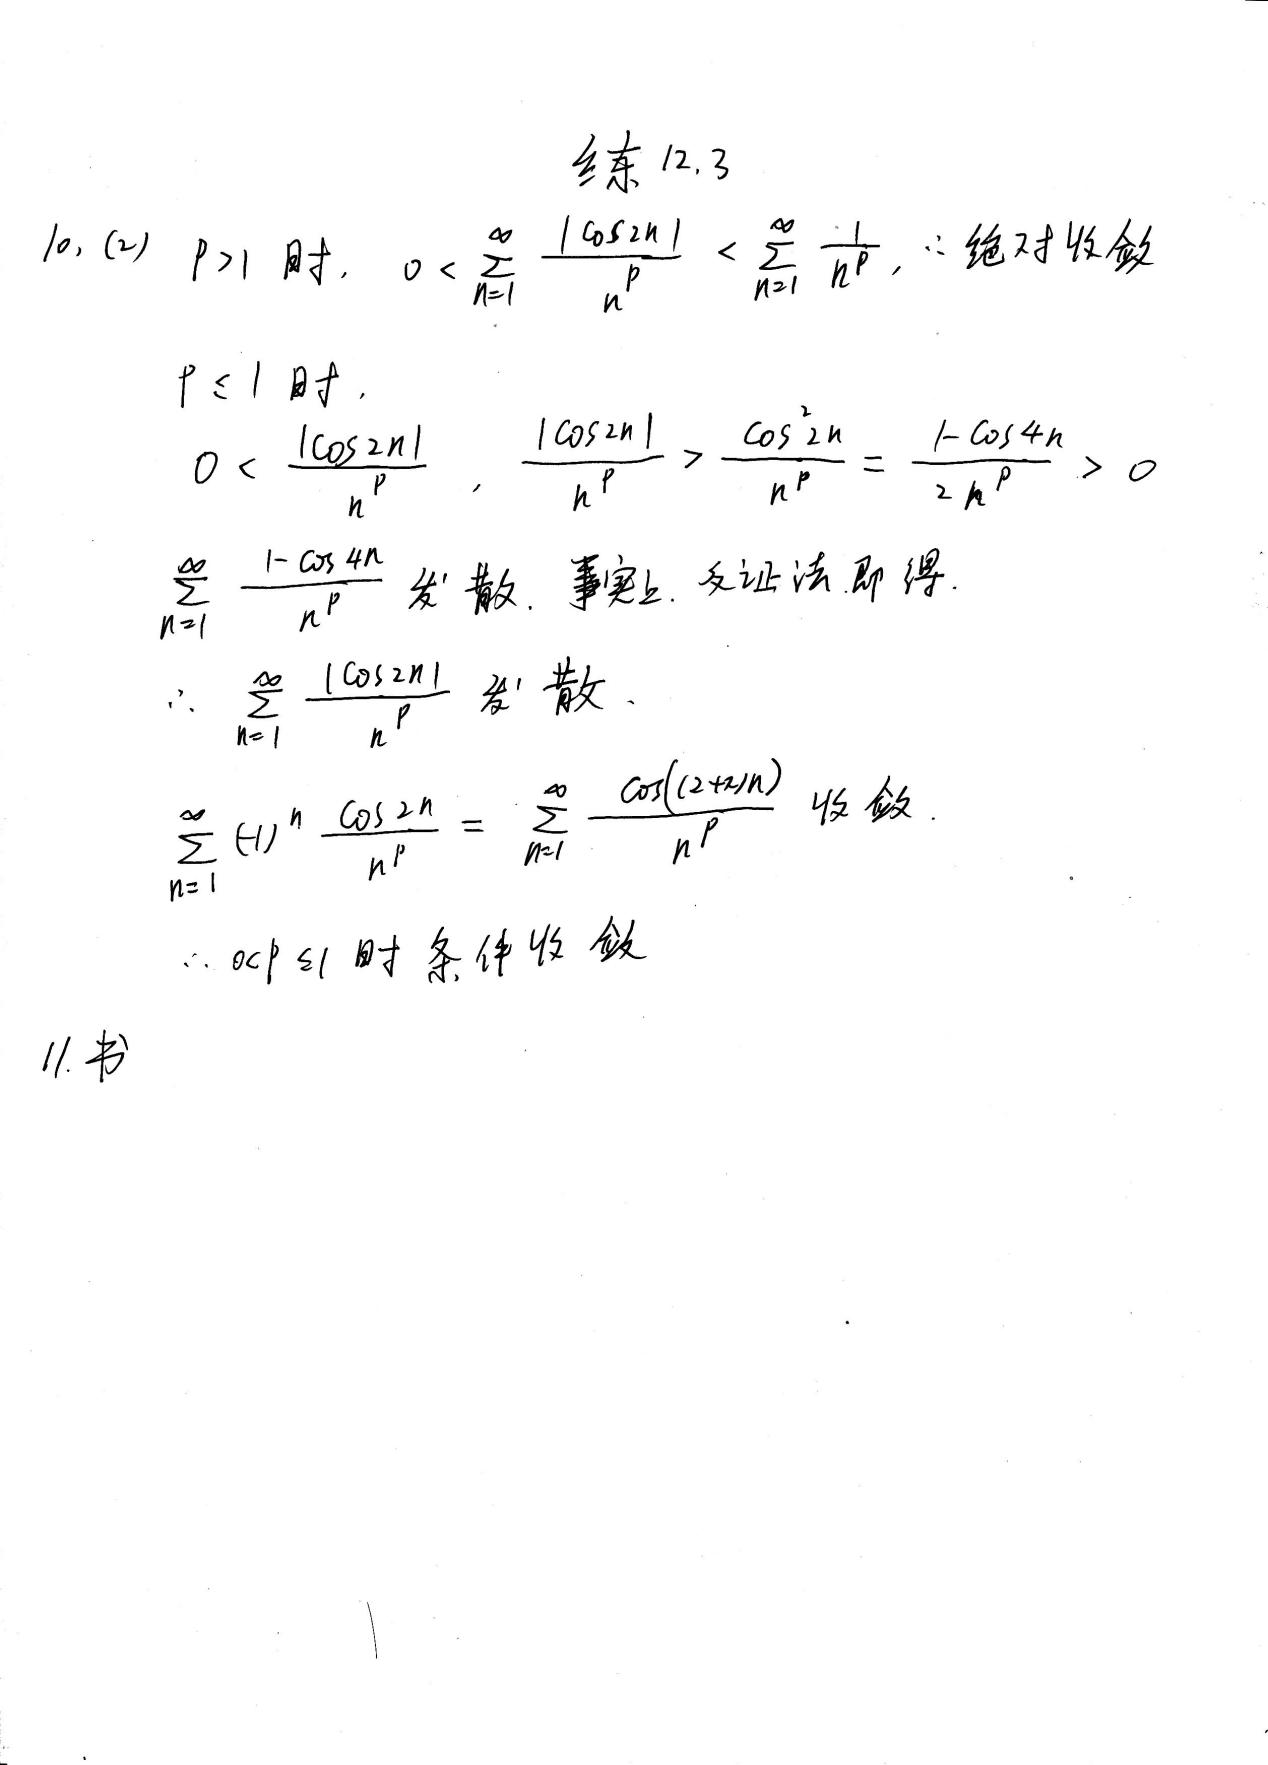 练 12.3
10. (2) p>1 时. 0 < ∑_{n=1}^{∞} |cos2n| / n^p < ∑_{n=1}^{∞} 1 / n^p, ∴ 绝对收敛
p ≤ 1 时.
0 < |cos2n| / n^p , |cos2n| / n^p > cos²2n / n^p = 1-cos4n / 2n^p > 0
∑_{n=1}^{∞} 1-cos4n / n^p 发散. 事实上. 反证法即得.
∴ ∑_{n=1}^{∞} |cos2n| / n^p 发散.
∑_{n=1}^{∞} (-1)^n cos2n / n^p = ∑_{n=1}^{∞} cos((2+π)n) / n^p 收敛.
∴ 0<p≤1 时 条件收敛
11. 书